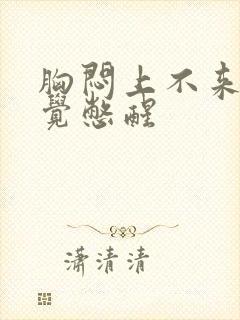 胸悶上不来
覺憋醒
潇清清